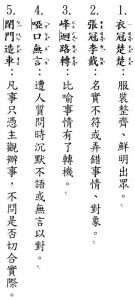 1. 衣冠楚楚：服裝整齊、鮮明出眾。
2. 張冠李戴：名實不符或弄錯事情、對象。
3. 峰迴路轉：比喻事情有了轉機。
4. 啞口無言：遭人質問時沉默不語或無言以對。
5. 閉門造車：凡事只憑主觀辦事，不問是否切合實際。